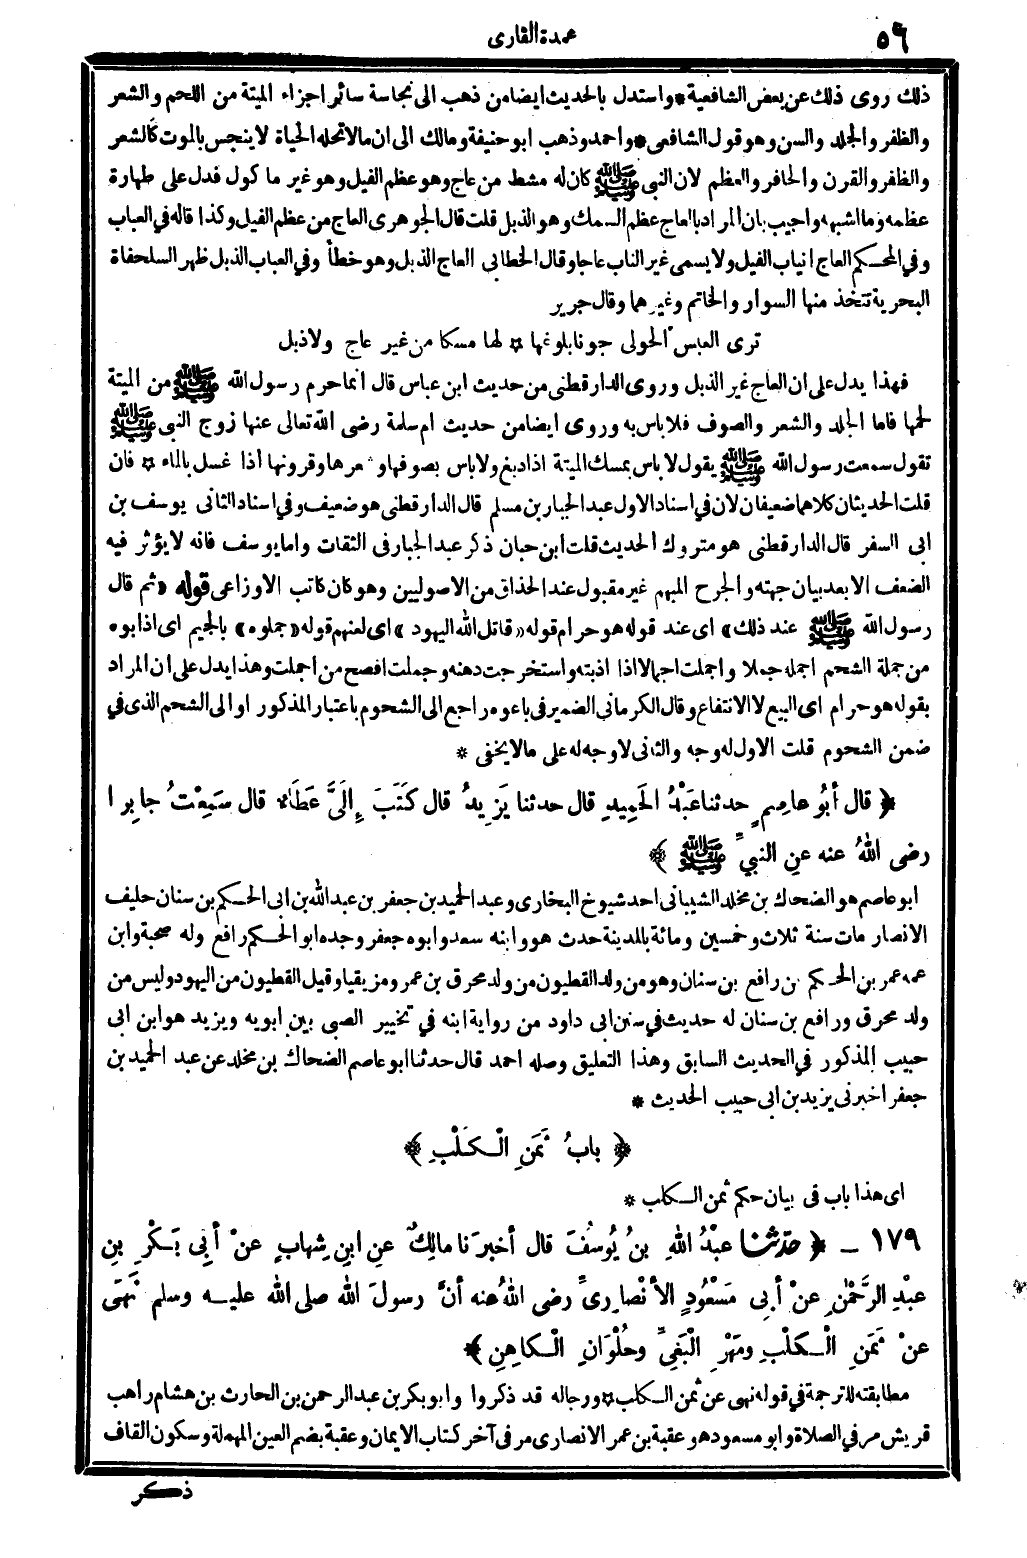 ٥٦
عمدة القارى
ذلك روى ذلك عن بعض الشافعية * واستدل بالحديث ايضا من ذهب الى نجاسة سائر اجزاء الميتة من اللحم والشعر
والظفر والجلد والسن وهو قول الشافعى * واحمد وذهب ابو حنيفة ومالك الى ان مالا تحله الحياة لا ينجس بالموت كالشعر
والظفر والقرن والحافر والعظم لان النبى ﷺ كان له مشط من عاج وهو عظم الفيل وهو غير ما كول فدل على طهارة
عظمه وما اشبهه واجيب بان المراد بالعاج عظم السمك وهو الذبل قلت قال الجوهرى العاج من عظم الفيل وكذا قاله فى العباب
وفي المحكم العاج انياب الفيل ولا يسمى غير الناب عاجا وقال الخطابى العاج الذبل وهو خطأ وفي العباب الذبل ظهر السلحفاة
البحرية تتخذ منها السوار والخاتم وغيرهما وقال جرير
ترى العبس الحولى جونا بلونها * لها مسكا من غير عاج ولا ذبل
فهذا يدل على ان العاج غير الذبل وروى الدارقطنى من حديث ابن عباس قال انما حرم رسول الله ﷺ من الميتة
لحمها فاما الجلد والشعر والصوف فلا باس به وروى ايضا من حديث ام سلمة رضى الله تعالى عنها زوج النبى ﷺ
تقول سمعت رسول الله ﷺ يقول لا باس بمسك الميتة اذا دبغ ولا باس بصوفها وشعرها وقرونها أذا غسل بالماء * فان
قلت الحديثان كلاهما ضعيفان لان في اسناد الاول عبد الجبار بن مسلم قال الدارقطنى هو ضعيف وفي اسناد الثانى يوسف بن
ابى السفر قال الدارقطنى هو متروك الحديث قلت ابن حبان ذكر عبد الجبار فى الثقات واما يوسف فانه لا يؤثر فيه
الضعف الا بعد بيان جهته والجرح المبهم غير مقبول عند الحذاق من الاصوليين وهو كان كاتب الاوزاعى قوله «ثم قال
رسول الله ﷺ عند ذلك» اى عند قوله هو حرام قوله «قاتل الله اليهود» اى لعنهم قوله «جملوه» بالجيم اى اذابوه
من جملة الشحم اجمله جملا واجملت اجمالا اذا اذبته واستخرجت دهنه وجملت افصح من اجملت وهذا يدل على ان المراد
بقوله هو حرام اى البيع لا الانتفاع وقال الكرمانى الضمير فى باعوه راجع الى الشحوم باعتبار المذكور او الى الشحم الذى في
ضمن الشحوم قلت الاول له وجه والثانى لا وجه له على مالا يخفى *
﴿ قال أبُو عاصِمٍ حدثنا عَبْدُ الحَمِيدِ قال حدثنا يَزِيدُ قال كَتَبَ إلَىَّ عَطَاءٌ قال سَمِعْتُ جابِرا
رضى اللهُ عنه عنِ النبيِّ ﷺ ﴾
ابو عاصم هو الضحاك بن مخلد الشيبانى احد شيوخ البخارى وعبد الحميد بن جعفر بن عبد الله بن ابى الحكم بن سنان حليف
الانصار مات سنة ثلاث وخمسين ومائة بالمدينة حدث هو وابنه سعد وابوه جعفر وجده ابو الحكم رافع وله صحبة وابن
عمه عمر بن الحكم بن رافع بن سنان وهو من ولد القطيون من ولد محرق بن عمرو مزيقيا وقيل القطيون من اليهود وليس من
ولد محرق ورافع بن سنان له حديث في سنن ابى داود من رواية ابنه في تخيير الصبى بين ابويه ويزيد هو ابن ابى
حبيب المذكور في الحديث السابق وهذا التعليق وصله احمد قال حدثنا ابو عاصم الضحاك بن مخلد عن عبد الحميد بن
جعفر اخبرنى يزيد بن ابى حبيب الحديث *
﴿ بابُ ثَمَنِ الْكَلْبِ ﴾
اى هذا باب فى بيان حكم ثمن الكلب *
١٧٩ ـ ﴿ حدّثنا عبْدُ اللهِ بنُ يُوسُفَ قال أخبرَنا مالِكٌ عنِ ابنِ شِهابٍ عنْ أبِي بَكْرِ بنِ
عبْدِ الرَّحْمٰنِ عنْ أبى مَسْعُودٍ الأنْصارِىِّ رضى اللهُ عنه أنَّ رسولَ الله صلى الله عليه وسلم نَهَى
عنْ ثَمَنِ الْكَلْبِ ومَهْرِ الْبَغِيِّ وحُلْوَانِ الْكاهِنِ ﴾
مطابقته للترجمة في قوله نهى عن ثمن الكلب * ورجاله قد ذكروا وابو بكر بن عبد الرحمن بن الحارث بن هشام راهب
قريش مر في الصلاة وابو مسعود هو عقبة بن عمر الانصارى مر فى آخر كتاب الايمان وعقبة بضم العين المهملة وسكون القاف
ذكر